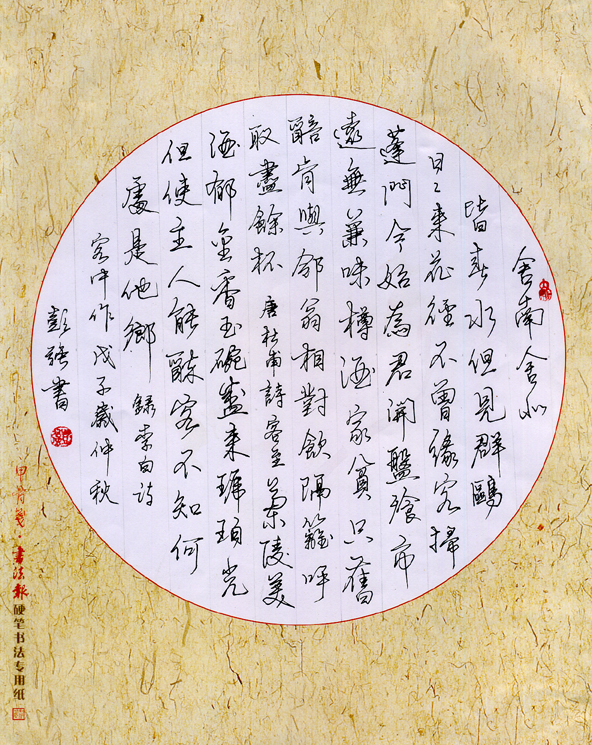 舍南舍北
皆春水但見群鷗
日々来花徑不曾緣客掃
蓬門今始為君開盤飱市
遠無兼味樽酒家貧只舊
醅肯與鄰翁相對飲隔籬呼
取盡餘杯 唐杜甫詩客至 蘭陵美
酒郁金香玉碗盛来琥珀光
但使主人能醉客不知何
處是他鄉 錄李白詩
客中作戊子歲仲秋
彭強書
甲骨箋·書法報硬笔书法专用纸